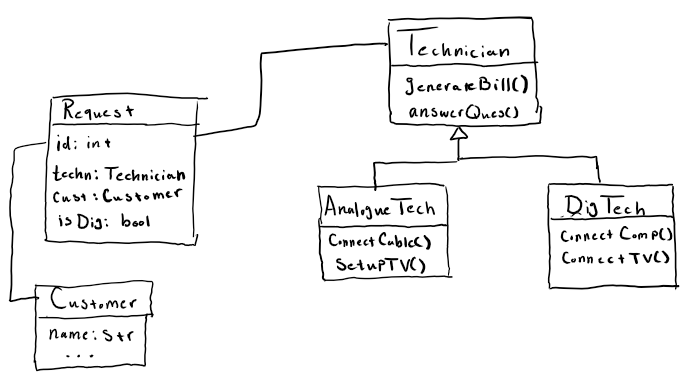 Technician
generateBill()
answerQues()
Request
id: int
techn: Technician
Cust: Customer
isDig: bool
AnalogueTech
ConnectCable()
SetupTV()
DigTech
ConnectComp()
ConnectTV()
Customer
name: Str
...